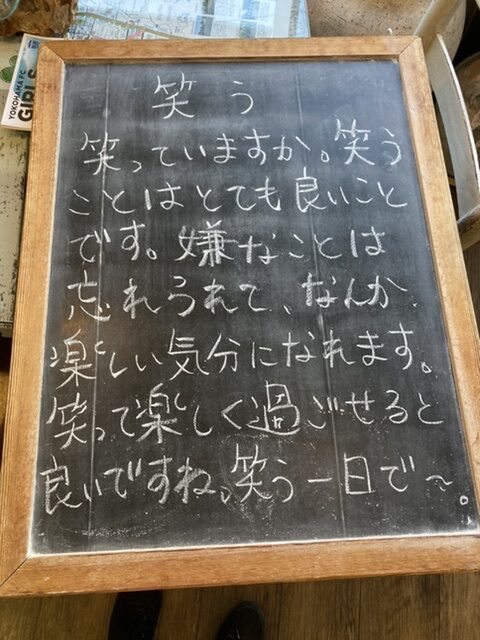 笑う
笑っていますか。笑う
ことはとても良いこと
です。嫌なことは
忘れられて、なんか
楽しい気分になれます。
笑って楽しく過ごせると
良いですね。笑う一日で〜。
YOKOHAMA FC
GIRLS